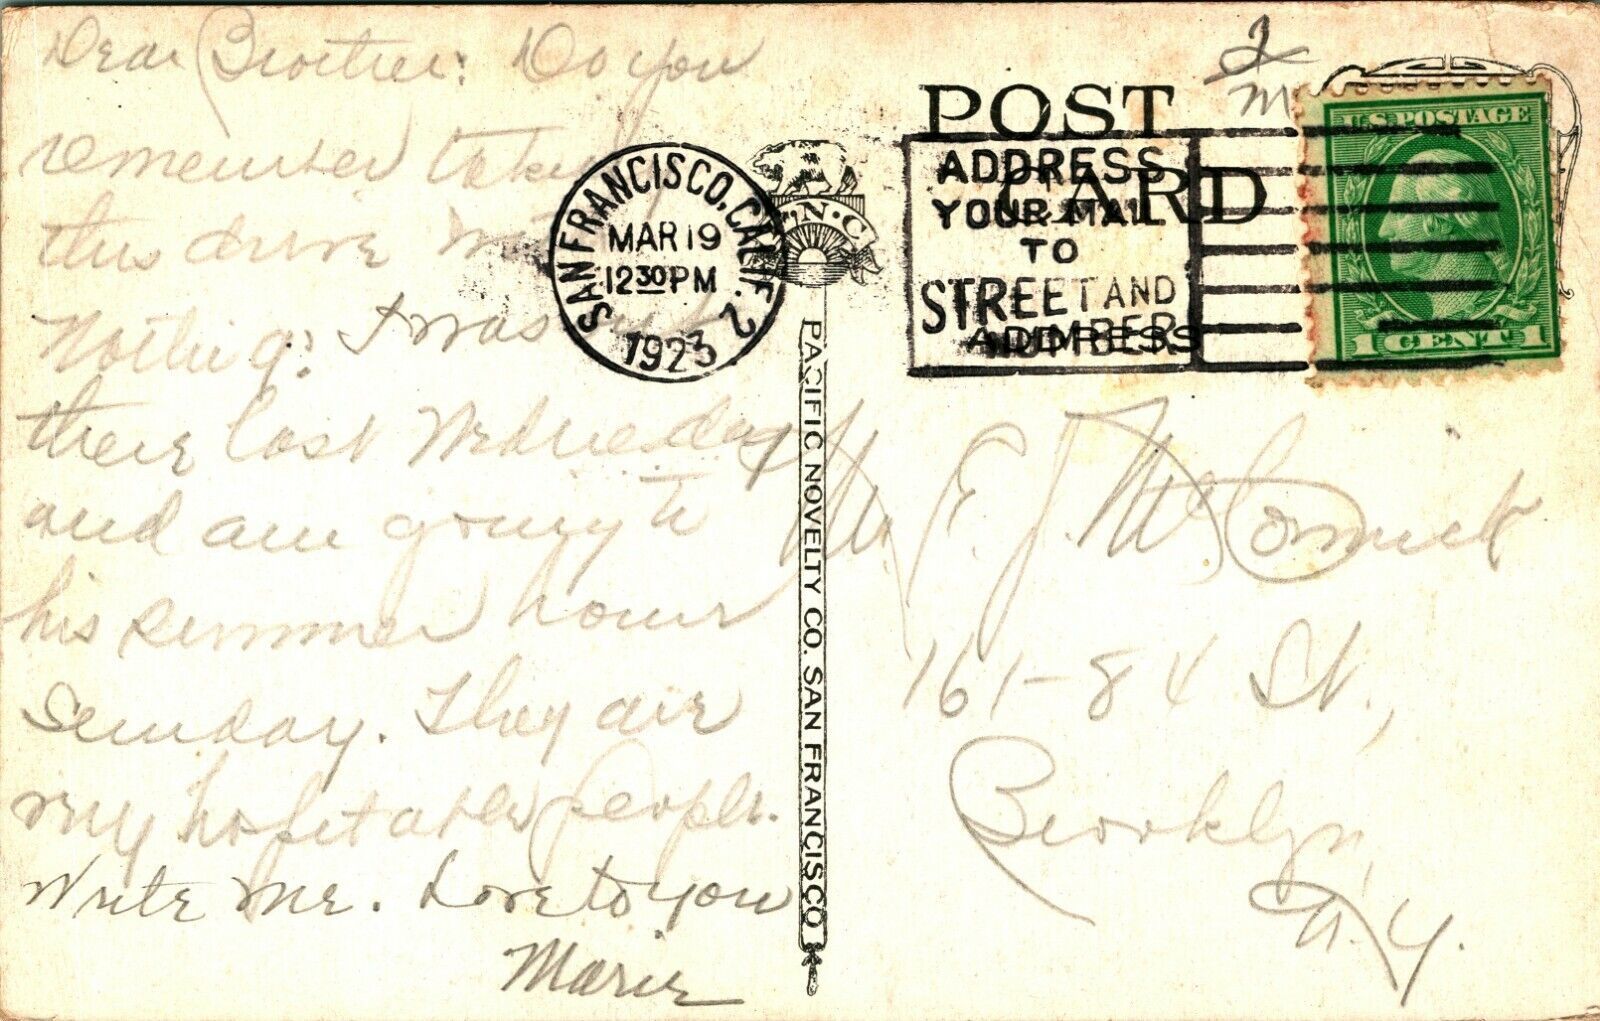 Dear Brother: Do you
remember taking
this drive with
Nothing: I was out
there last Wednesday
and am going to
his summer home
Sunday. They are
very hospitable people.
Write me. Love to you
Marie
POST CARD
P.N.C.
PACIFIC NOVELTY CO. SAN FRANCISCO
SAN FRANCISCO, CALIF. 2
MAR 19
12 30 PM
1923
ADDRESS
YOUR MAIL
TO
STREET AND
NUMBER
ADDRESS
U.S. POSTAGE
1 CENT 1
Mr. E. J. McCormick
161-84 St.,
Brooklyn,
N.Y.